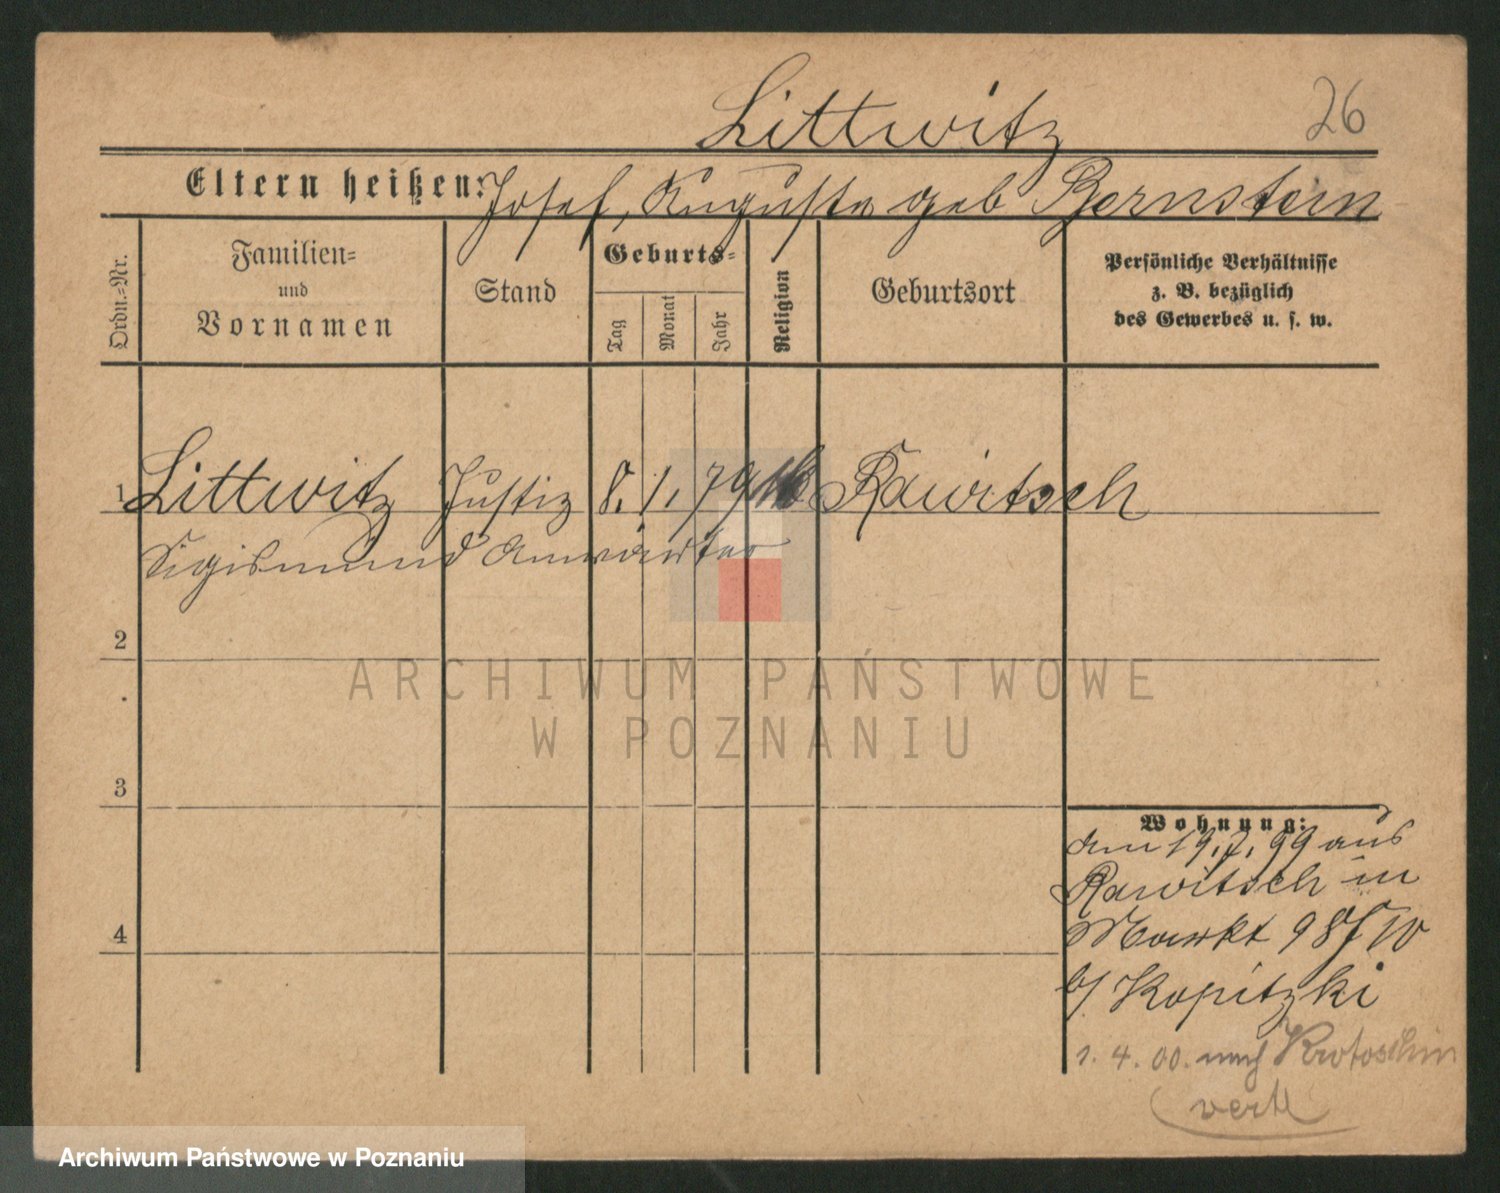 Littwitz
26
Eltern heißen: Josef, Auguste geb Bernstein
Ordn.-Nr.
Familien-
und
Vornamen
Stand
Geburts-
Tag
Monat
Jahr
Religion
Geburtsort
Persönliche Verhältnisse
z. B. bezüglich
des Gewerbes u. s. w.
1 Littwitz Justiz 8. 1. 79 Rawitsch
Sigismund Anwärter
2
3
4
ARCHIWUM PAŃSTWOWE
W POZNANIU
Wohnung:
am 19. 7. 99 aus
Rawitsch in
Markt 98/
b/ Kopitzki
1. 4. 00. nach Krotoschin
Archiwum Państwowe w Poznaniu